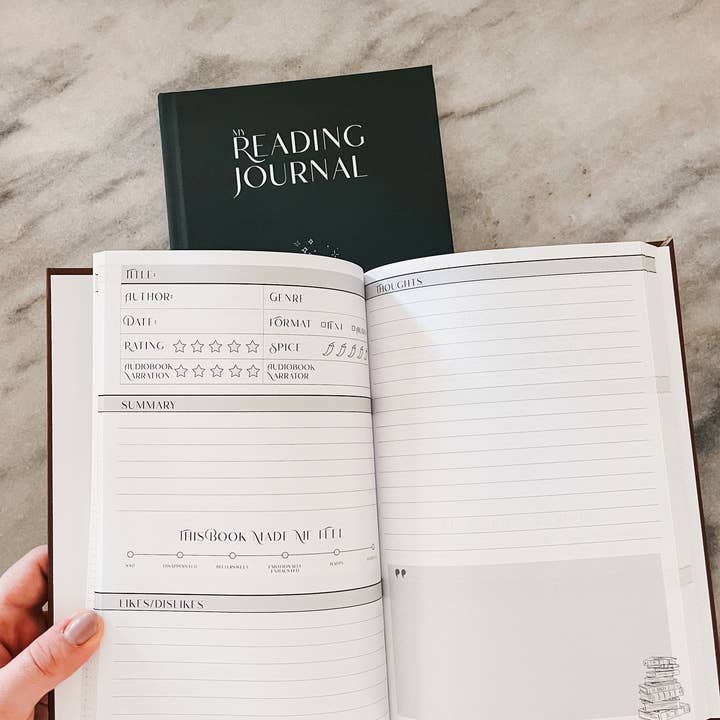 MY
READING
JOURNAL
TITLE:
AUTHOR: GENRE
DATE: FORMAT TEXT
RATING SPICE
AUDIOBOOK NARRATION AUDIOBOOK NARRATOR
SUMMARY
THIS BOOK MADE ME FEEL
SAD DISAPPOINTED BITTERSWEET EMOTIONALLY EXHAUSTED HAPPY
LIKES/DISLIKES
THOUGHTS
"